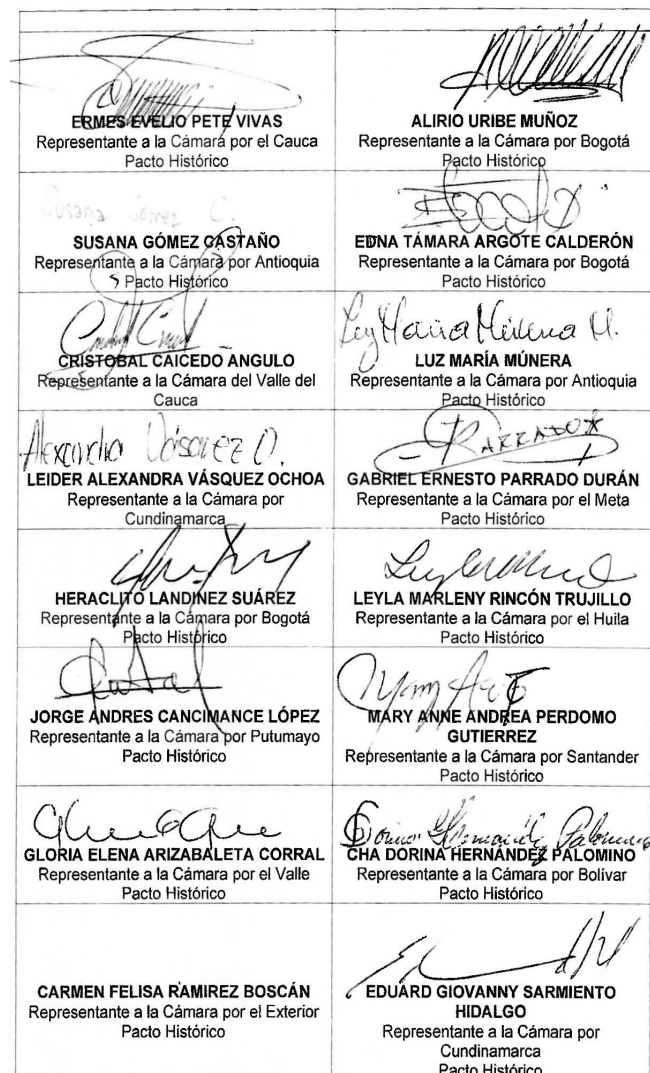 ERMES EVELIO PETE VIVAS
Representante a la Cámara por el Cauca
Pacto Histórico
ALIRIO URIBE MUÑOZ
Representante a la Cámara por Bogotá
Pacto Histórico
Susana Gómez C.
SUSANA GÓMEZ CASTAÑO
Representante a la Cámara por Antioquia
Pacto Histórico
EDNA TÁMARA ARGOTE CALDERÓN
Representante a la Cámara por Bogotá
Pacto Histórico
CRISTOBAL CAICEDO ANGULO
Representante a la Cámara del Valle del
Cauca
Luz María Múnera M.
LUZ MARÍA MÚNERA
Representante a la Cámara por Antioquia
Pacto Histórico
Alexandra Vásquez O.
LEIDER ALEXANDRA VÁSQUEZ OCHOA
Representante a la Cámara por
Cundinamarca
PARRADO
GABRIEL ERNESTO PARRADO DURÁN
Representante a la Cámara por el Meta
Pacto Histórico
HERACLITO LANDINEZ SUÁREZ
Representante a la Cámara por Bogotá
Pacto Histórico
LEYLA MARLENY RINCÓN TRUJILLO
Representante a la Cámara por el Huila
Pacto Histórico
JORGE ANDRES CANCIMANCE LÓPEZ
Representante a la Cámara por Putumayo
Pacto Histórico
MARY ANNE ANDREA PERDOMO
GUTIERREZ
Representante a la Cámara por Santander
Pacto Histórico
GLORIA ELENA ARIZABALETA CORRAL
Representante a la Cámara por el Valle
Pacto Histórico
Dorina Hernández Palomino
CHA DORINA HERNÁNDEZ PALOMINO
Representante a la Cámara por Bolívar
Pacto Histórico
CARMEN FELISA RAMIREZ BOSCÁN
Representante a la Cámara por el Exterior
Pacto Histórico
EDUARD GIOVANNY SARMIENTO
HIDALGO
Representante a la Cámara por
Cundinamarca
Pacto Histórico